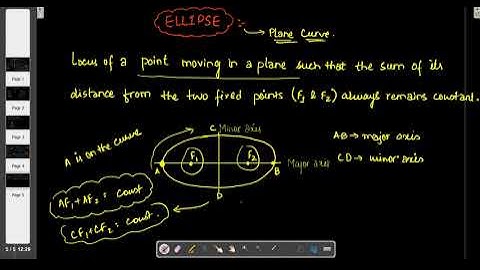 ELLIPSE :-
→ Plane Curve.
Locus of a point moving in a plane such that the sum of its
distance from the two fixed points (F₁ & F₂) always remains constant.
C Minor axis
A is on the curve
F₁ F₂
A B Major axis
D
AB → major axis
CD → minor axis
AF₁ + AF₂ = const
CF₁ + CF₂ = const.
Page 1
Page 2
Page 3
Page 4
Page 5